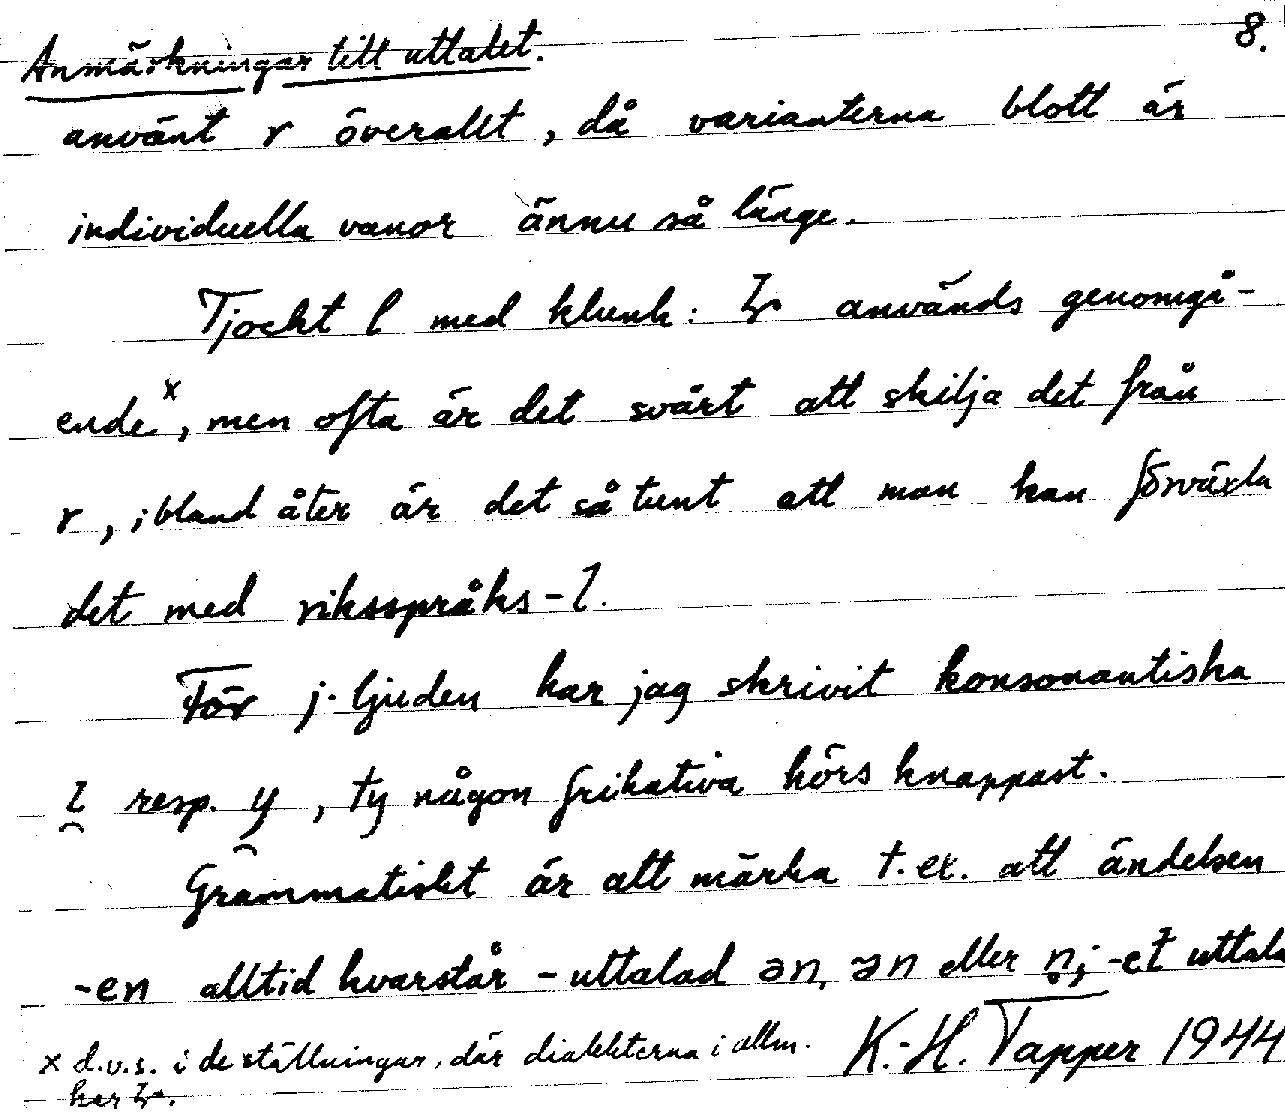 8.
Anmärkningar till uttalet.
använt r överallt, då varianterna blott är
individuella vanor ännu så länge.
Tjockt l med klunk: används genomgå-
ende x, men ofta är det svårt att skilja det från
r, ibland åter är det så tunt att man kan förväxla
det med riksspråks-l.
För j-ljuden har jag skrivit konsonantiska
i̯ resp. y̯, ty någon frikativa hörs knappast.
Grammatiskt är att märka t.ex. att ändelsen
-en alltid kvarstår - uttalad ən, ɘn eller n̥; -et uttala
x d.v.s. i de ställningar, där dialekterna i allm.
har
K.-H. Tapper 1944